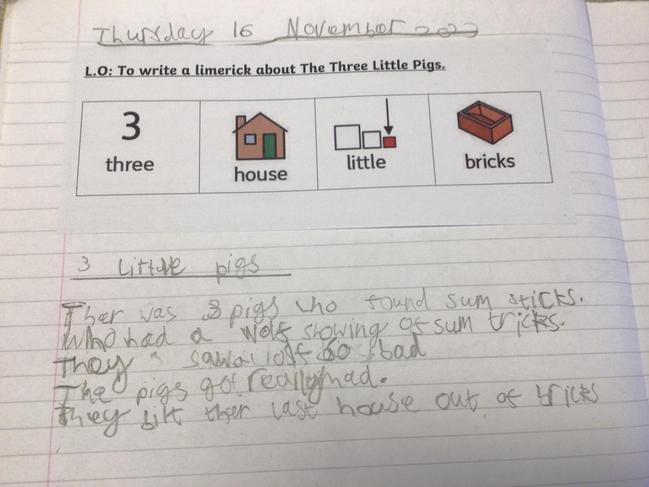 Thursday 16 November 2023
L.O: To write a limerick about The Three Little Pigs.
3
three house little bricks
3 Little pigs
Ther was 3 pigs who found sum sticks.
Who had a wolf showing of sum tricks.
They saw a wolf so bad
The pigs got really mad.
They bilt ther last house out of bricks